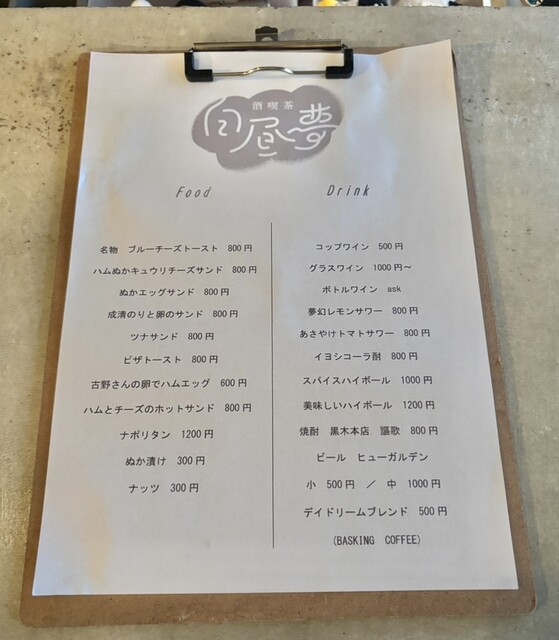 酒喫茶
白昼夢
Food
名物 ブルーチーズトースト 800円
ハムぬかキュウリチーズサンド 800円
ぬかエッグサンド 800円
成清のりと卵のサンド 800円
ツナサンド 800円
ピザトースト 800円
古野さんの卵でハムエッグ 600円
ハムとチーズのホットサンド 800円
ナポリタン 1200円
ぬか漬け 300円
ナッツ 300円
Drink
コップワイン 500円
グラスワイン 1000円～
ボトルワイン ask
夢幻レモンサワー 800円
あさやけトマトサワー 800円
イヨシコーラ酎 800円
スパイスハイボール 1000円
美味しいハイボール 1200円
焼酎 黒木本店 謳歌 800円
ビール ヒューガルデン
小 500円 ／ 中 1000円
デイドリームブレンド 500円
(BASKING COFFEE)